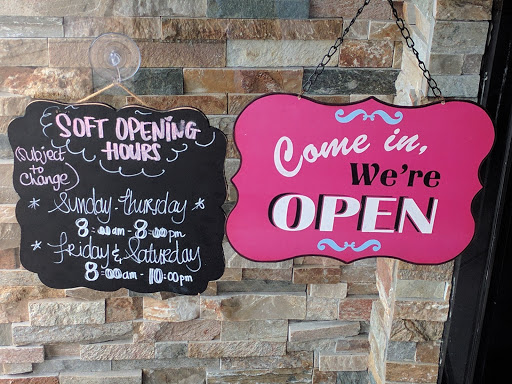 SOFT OPENING
HOURS
(subject
to
change)
* Sunday-Thursday *
8:00am - 8:00pm
* Friday & Saturday *
8:00am - 10:00pm
Come in,
We're
OPEN